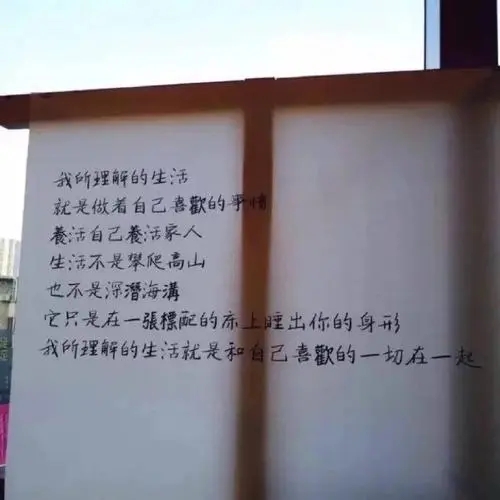 我所理解的生活
就是做着自己喜歡的事情
養活自己養活家人
生活不是攀爬高山
也不是深潛海溝
它只是在一張標配的床上睡出你的身形
我所理解的生活就是和自己喜歡的一切在一起